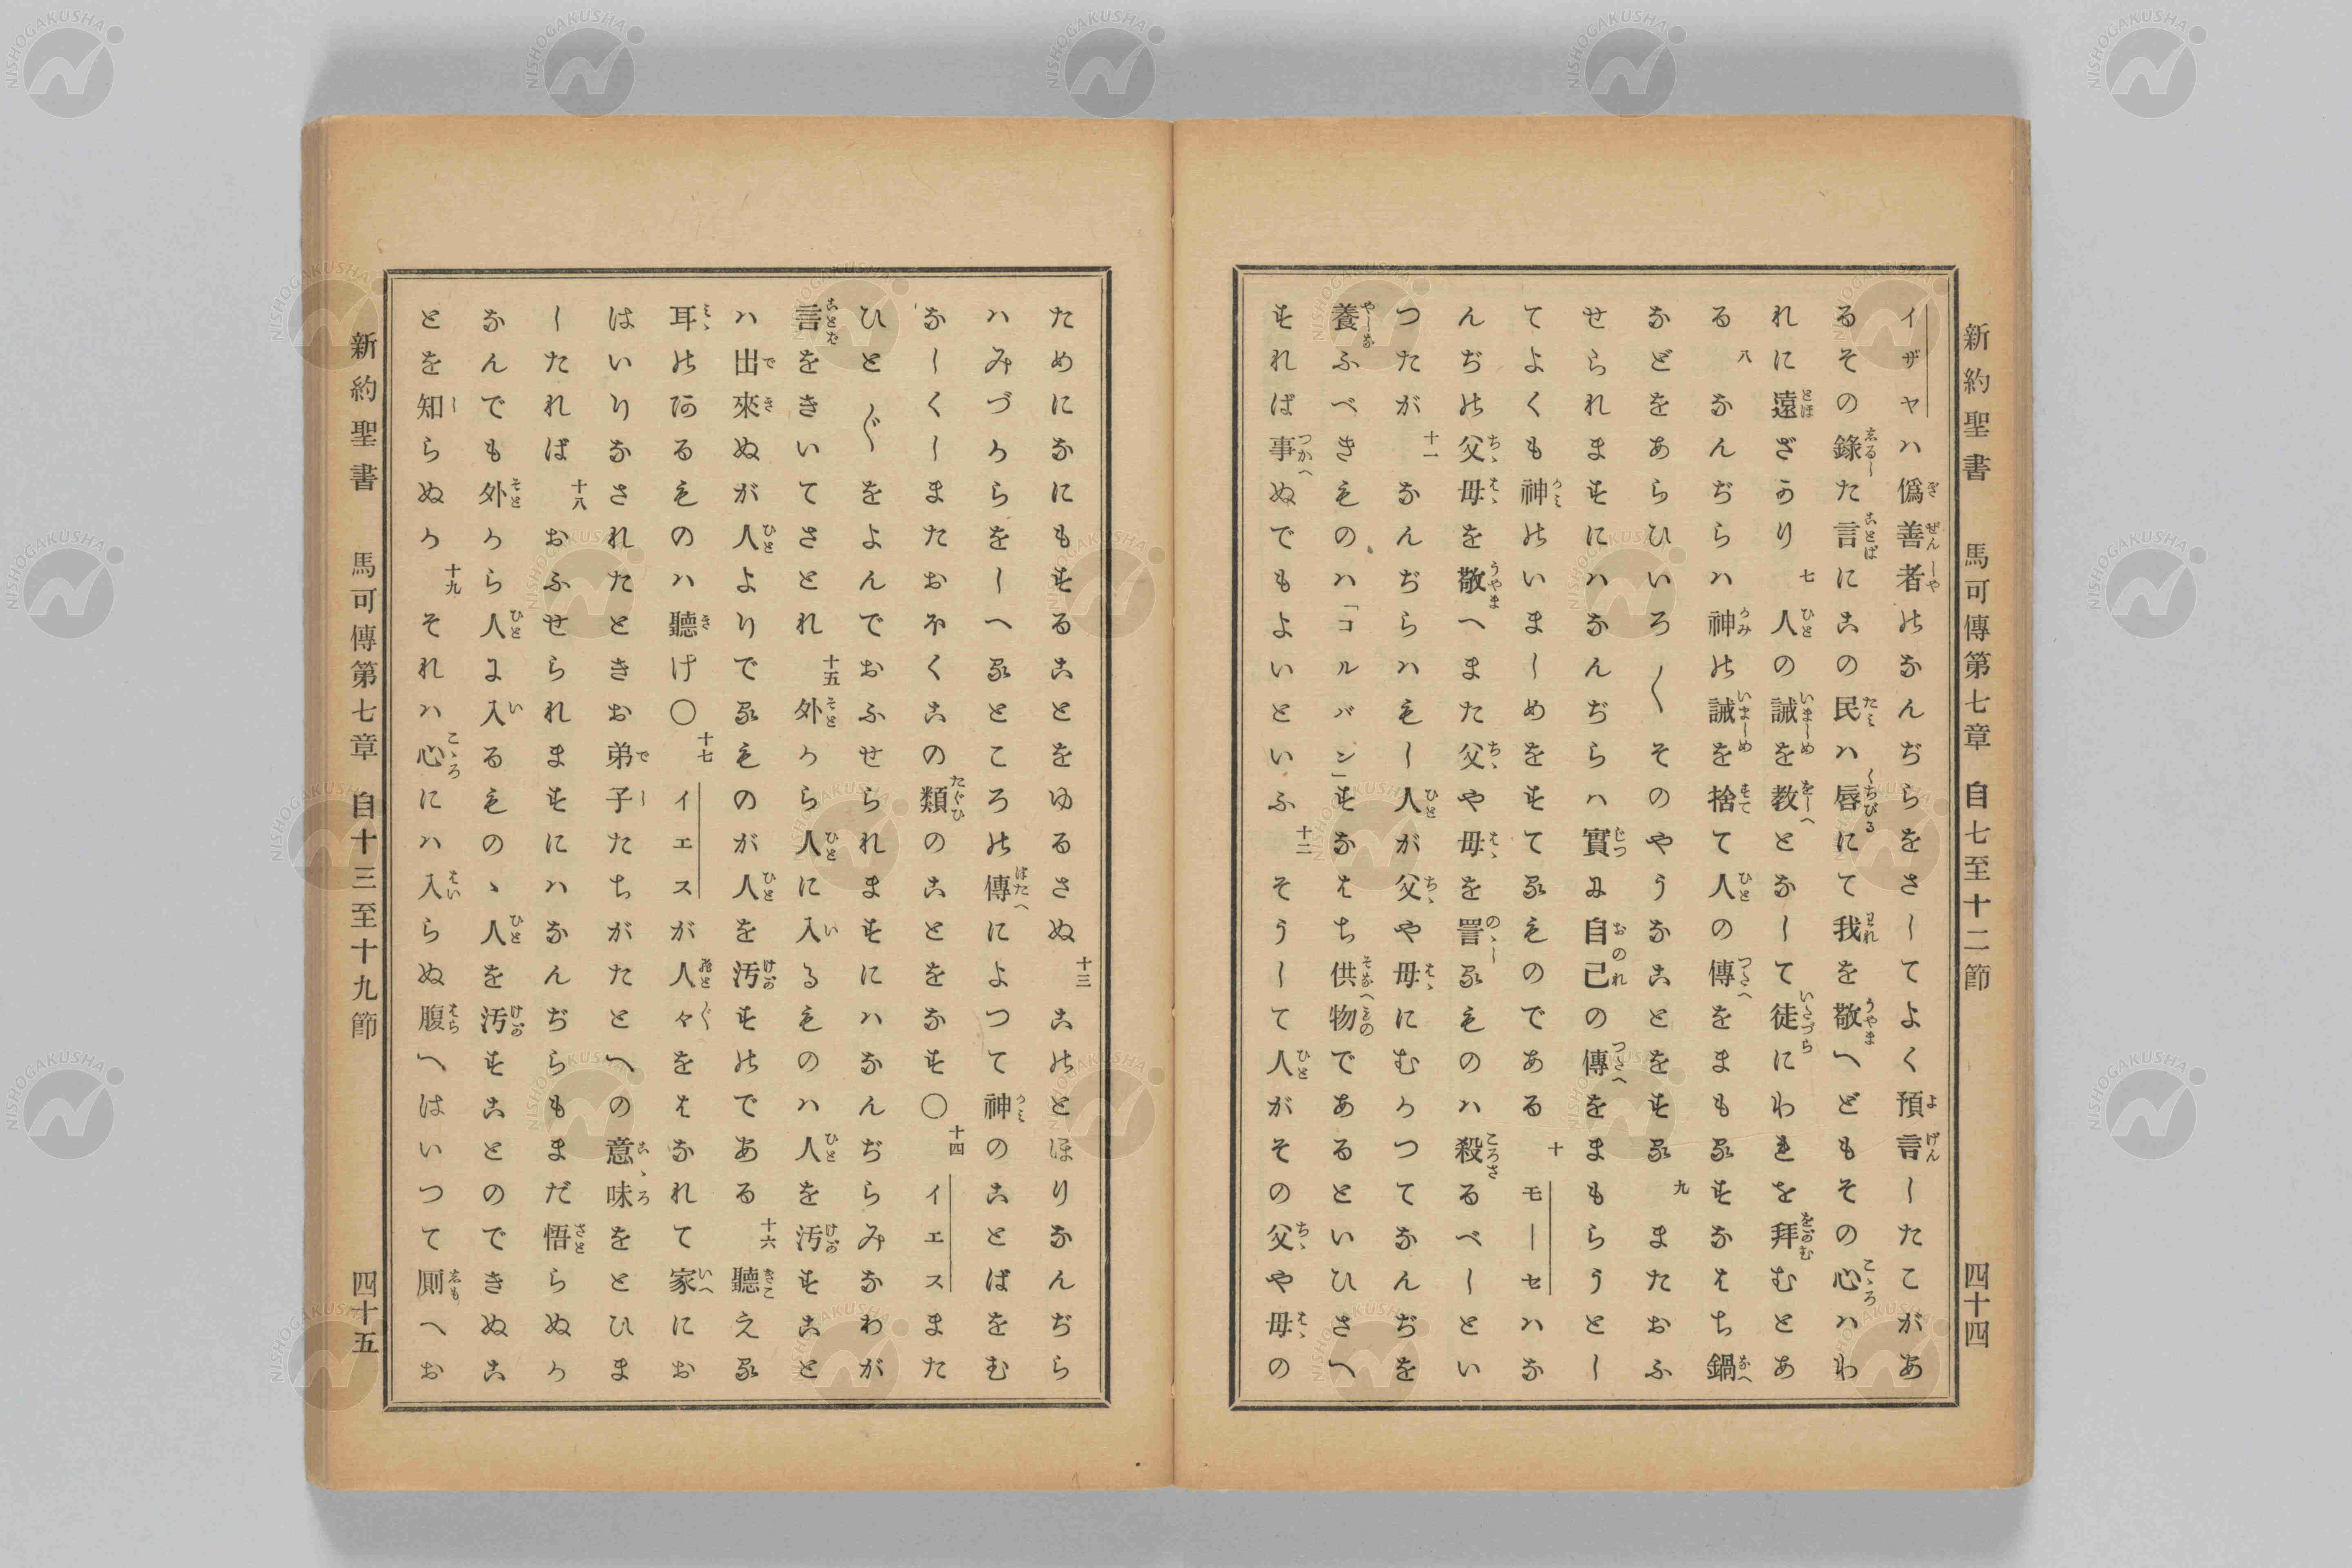 新約聖書 馬可傳第七章 自七至十二節 四十四
イザヤハ僞善者のなんぢらをさしてよく預言したこがあ
るその錄した言にこの民ハ唇にて我を敬へどもその心ハわ
れに遠ざかり 七 人の誡を教となして徒にわれを拜むとあ
る 八 なんぢらハ神の誡を捨て人の傳をまもるすなはち鍋
などをあらひいろ〱そのやうなことをする 九 またおふ
せられますにハなんぢらハ實に自己の傳をまもらうとし
てよくも神のいましめをすてるものである 十 モーセハな
んぢの父母を敬へまた父や母を詈るものハ殺るべしとい
つたが 十一 なんぢらハもし人が父や母にむかつてなんぢを
養ふべきものハ「コルバン」すなはち供物であるといひさへ
すれば事へぬでもよいといふ 十二 そうして人がその父や母の
ためになにもすることをゆるさぬ 十三 このとほりなんぢら
ハみづからをしへるところの傳によつて神のことばをむ
なしくしまたおほくこの類のことをなす〇 十四 イエスまた
ひと〲をよんでおふせられますにハなんぢらみなわが
言をきいてさとれ 十五 外から人に入るものハ人を汚すこと
ハ出來ぬが人よりでるものが人を汚すのである 十六 聽える
耳のあるものハ聽け〇 十七 イエスが人々をはなれて家にお
はいりなされたときお弟子たちがたとへの意味をとひま
したれば 十八 おふせられますにハなんぢらもまだ悟らぬか
なんでも外から人に入るものゝ人を汚すことのできぬこ
とを知らぬか 十九 それハ心にハ入らぬ腹へはいつて厠へお
新約聖書 馬可傳第七章 自十三至十九節 四十五
NISHOGAKUSHA